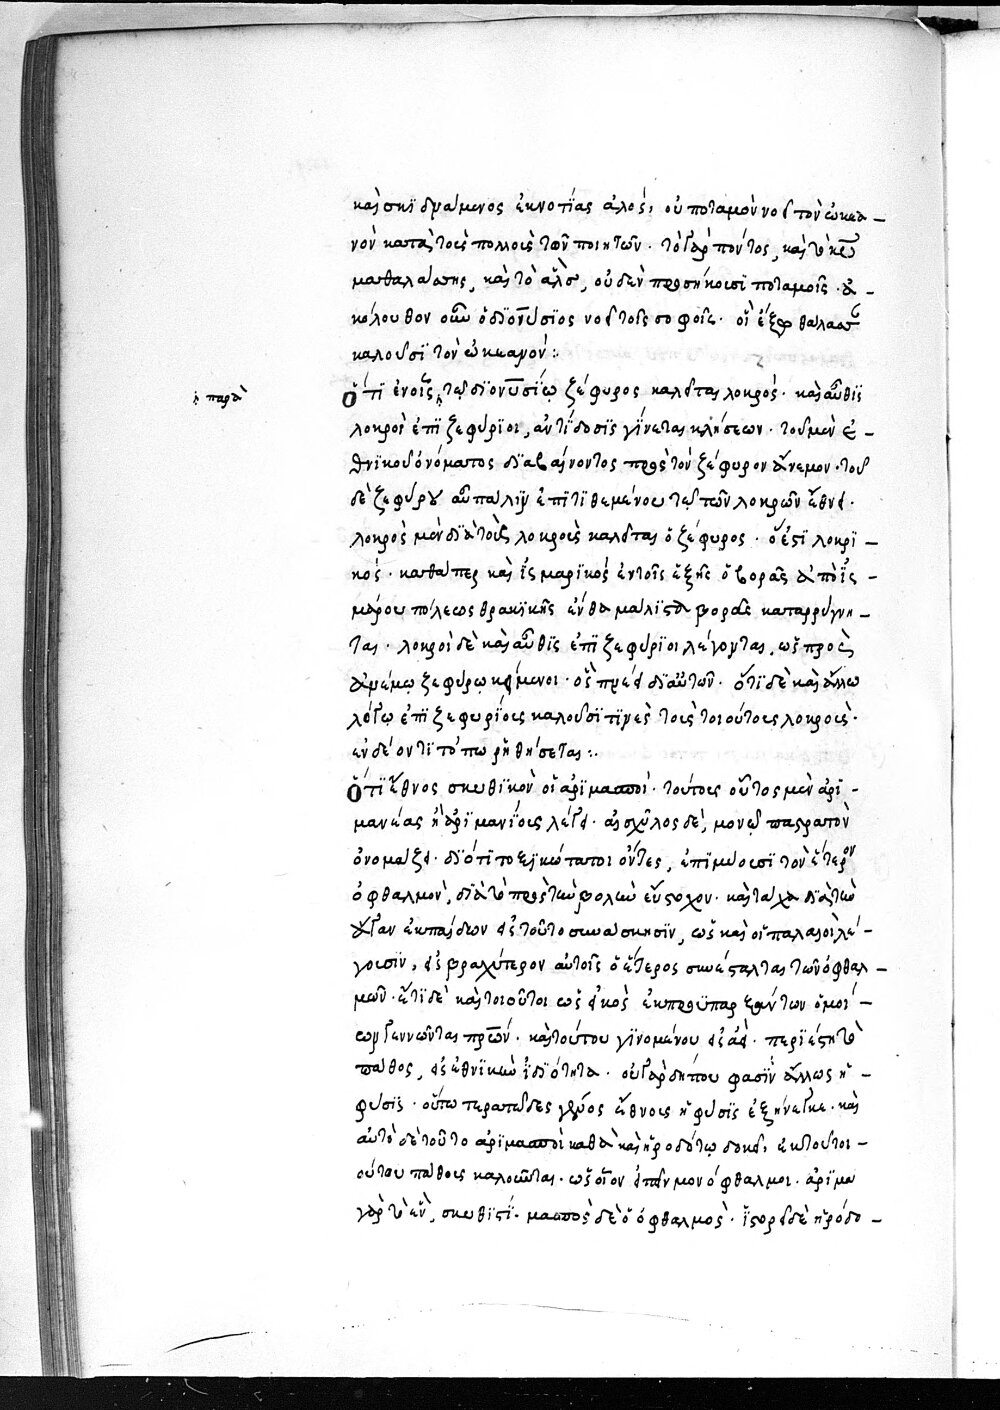 καὶ σκιδναμένος ἐκ νοτίας ἁλός, οὐ ποταμὸν νοεῖ τὸν ὠκεα-
νὸν κατὰ τοὺς πολλοὺς τῶν ποιητῶν. τὸ γὰρ πόντος, καὶ τὸ κῦ
μα θαλάσσης, καὶ τὸ ἅλς, οὐδὲν προσήκουσι ποταμοῖς. ἀ-
κόλουθον οὖν ὁ διονύσιος νοεῖ τοῖς σοφοῖς. οἳ ἔξω θάλασσαν
καλοῦσι τὸν ὠκεανόν:
Ὅτι ἐν οἷς τῷ διονυσίῳ ζέφυρος καλεῖται λοκρός. καὶ αὖθις
ἡ παρὰ
λοκροὶ ἐπιζεφύριοι, ἀντίδοσις γίνεται κλήσεων. τοῦ μὲν ἐ-
θνικοῦ ὀνόματος διαβαίνοντος πρὸς τὸν ζέφυρον ἄνεμον. τοῦ
δὲ ζεφύρου αὖ πάλιν ἐπιτιθεμένου τῷ τῶν λοκρῶν ἔθνει.
λοκρὸς μὲν διὰ τοὺς λοκροὺς καλεῖται ὁ ζέφυρος. ὅ ἐστι λοκρι-
κός. καθάπερ καὶ ἰσμαρικός ἐν τοῖς ἑξῆς ὁ βορρᾶς ἀπὸ ἰσ-
μάρου πόλεως θρακικῆς ἔνθα μάλιστα βορρᾶς καταρρήγνυ-
ται. λοκροὶ δὲ καὶ αὖθις ἐπιζεφύριοι λέγονται, ὡς πρὸς
ἀνέμῳ ζεφύρῳ κείμενοι. ὃς πνέει δι' αὐτῶν. ὅτι δὲ καὶ ἄλλῳ
λόγῳ ἐπιζεφυρίους καλοῦσί τινες τοὺς τοιούτους λοκρούς.
ἐν δέοντι τόπῳ ῥηθήσεται:
Ὅτι ἔθνος σκυθικὸν οἱ ἀριμασποί. τούτους οὗτος μὲν ἀρι-
μανέας ἢ ἀριμανίους λέγει. αἰσχύλος δὲ, μονῶπα στρατὸν
ὀνομάζει. διότι τοξικώτατοι ὄντες, ἐπιμύουσι τὸν ἕτερον
ὀφθαλμὸν, διὰ τὸ πρὸς τὴν βολὴν εὔστοχον. καὶ τάχα διὰ τὴν
ἄγαν ἐκ παίδων εἰς τοῦτο συνάσκησιν, ὡς καὶ οἱ παλαιοὶ λέ-
γουσιν, εἰς βραχύτερον αὐτοῖς ὁ ἕτερος συνέσταλται τῶν ὀφθαλ-
μῶν. ἔτι δὲ καὶ τοιοῦτοι ὡς εἰκὸς ἐκ προϋπαρξάντων ὅμοι-
ων γεννῶνται πρῶτον. καὶ τούτου γινομένου εἰς ἀεί. περιέστη τὸ
πάθος, εἰς ἐθνικὴν ἰδιότητα. οὐ γὰρ δήπου φασὶν ἄλλως ἡ
φύσις. οὕτω τερατῶδες γένος ἔθνους ἡ φύσις ἐξήνεγκε. καὶ
αὐτὸ δὲ τοῦτο ἀριμασποὶ καθὰ καὶ ἡροδότῳ δοκεῖ, ἐκ τοῦ τοι-
ούτου πάθους καλοῦνται. ὡς οἷον εἰπεῖν μονόφθαλμοι. ἄριμα
γὰρ τὸ ἓν, σκυθιστί. μασπὸς δὲ ὁ ὀφθαλμός. ἱστορεῖ δὲ ἡρόδο-